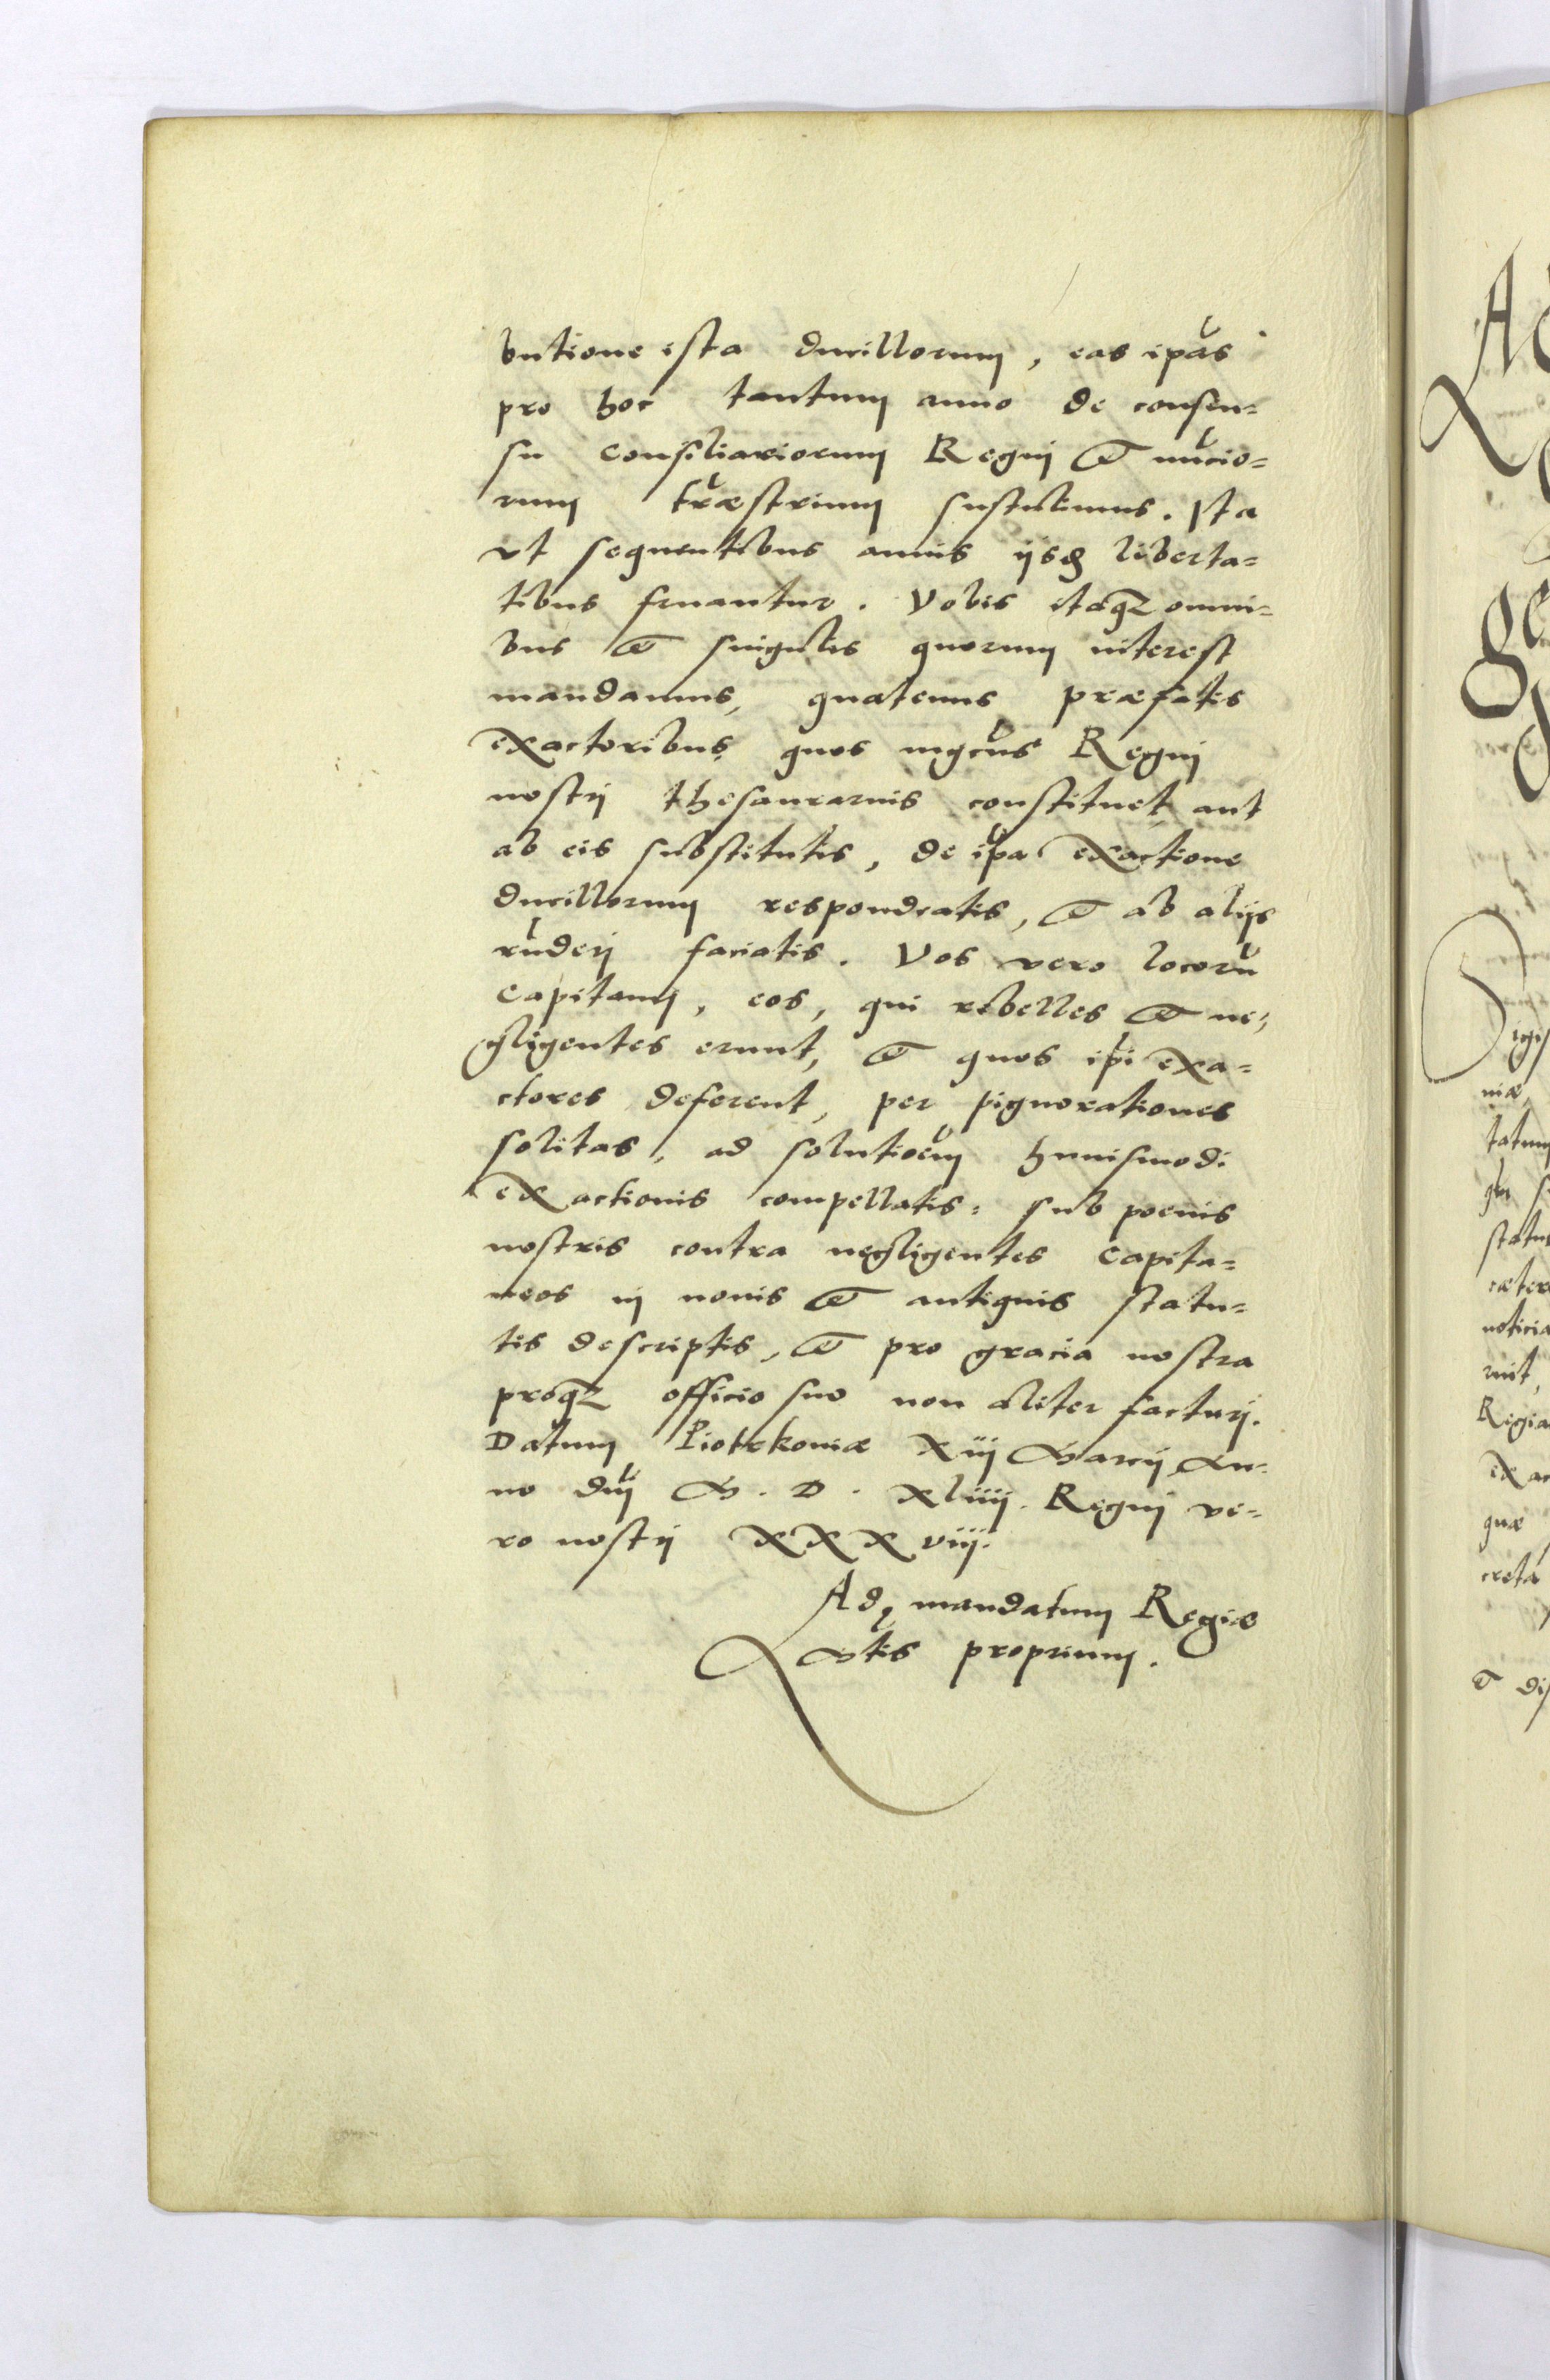 butione ista ducillorum, eas ip̃as
pro hoc tantum anno de consen=
su Consiliariorum Regnj et nũcio=
rum tr̃æstrium sustulimus. Ita
vt sequentibus annis ijsd. liberta=
tibus fruantur. Vobis itaq₃ omni=
bus et singulis quorum interest
mandamus, quatenus præfatis
exactoribus, quos mgc̃us Regnj
nostrj thesaurarius constituet, aut
ab eis substitutis, de ip̃a exactione
ducillorum respondeatis, et ab alijs
rñderj faciatis. Vos vero locorũ
Capitanej, eos, qui rebelles et ne=
gligentes erunt, et quos ip̃i exa=
ctores deferent, per pignorationes
solitas, ad solutioẽm huiusmodi
exactionis compellatis: sub poenis
nostris contra negligentes Capita=
neos in nouis et antiquis statu=
tis descriptis, et pro gracia nostra
proq₃ officio suo non aliter facturj.
Datum Piotrkoniæ Xiij Marcij An=
no dñj M. D. xliiij. Regnj ve=
ro nostrj XXX viij.
Ad mandatum Regiæ
Mtis proprium.